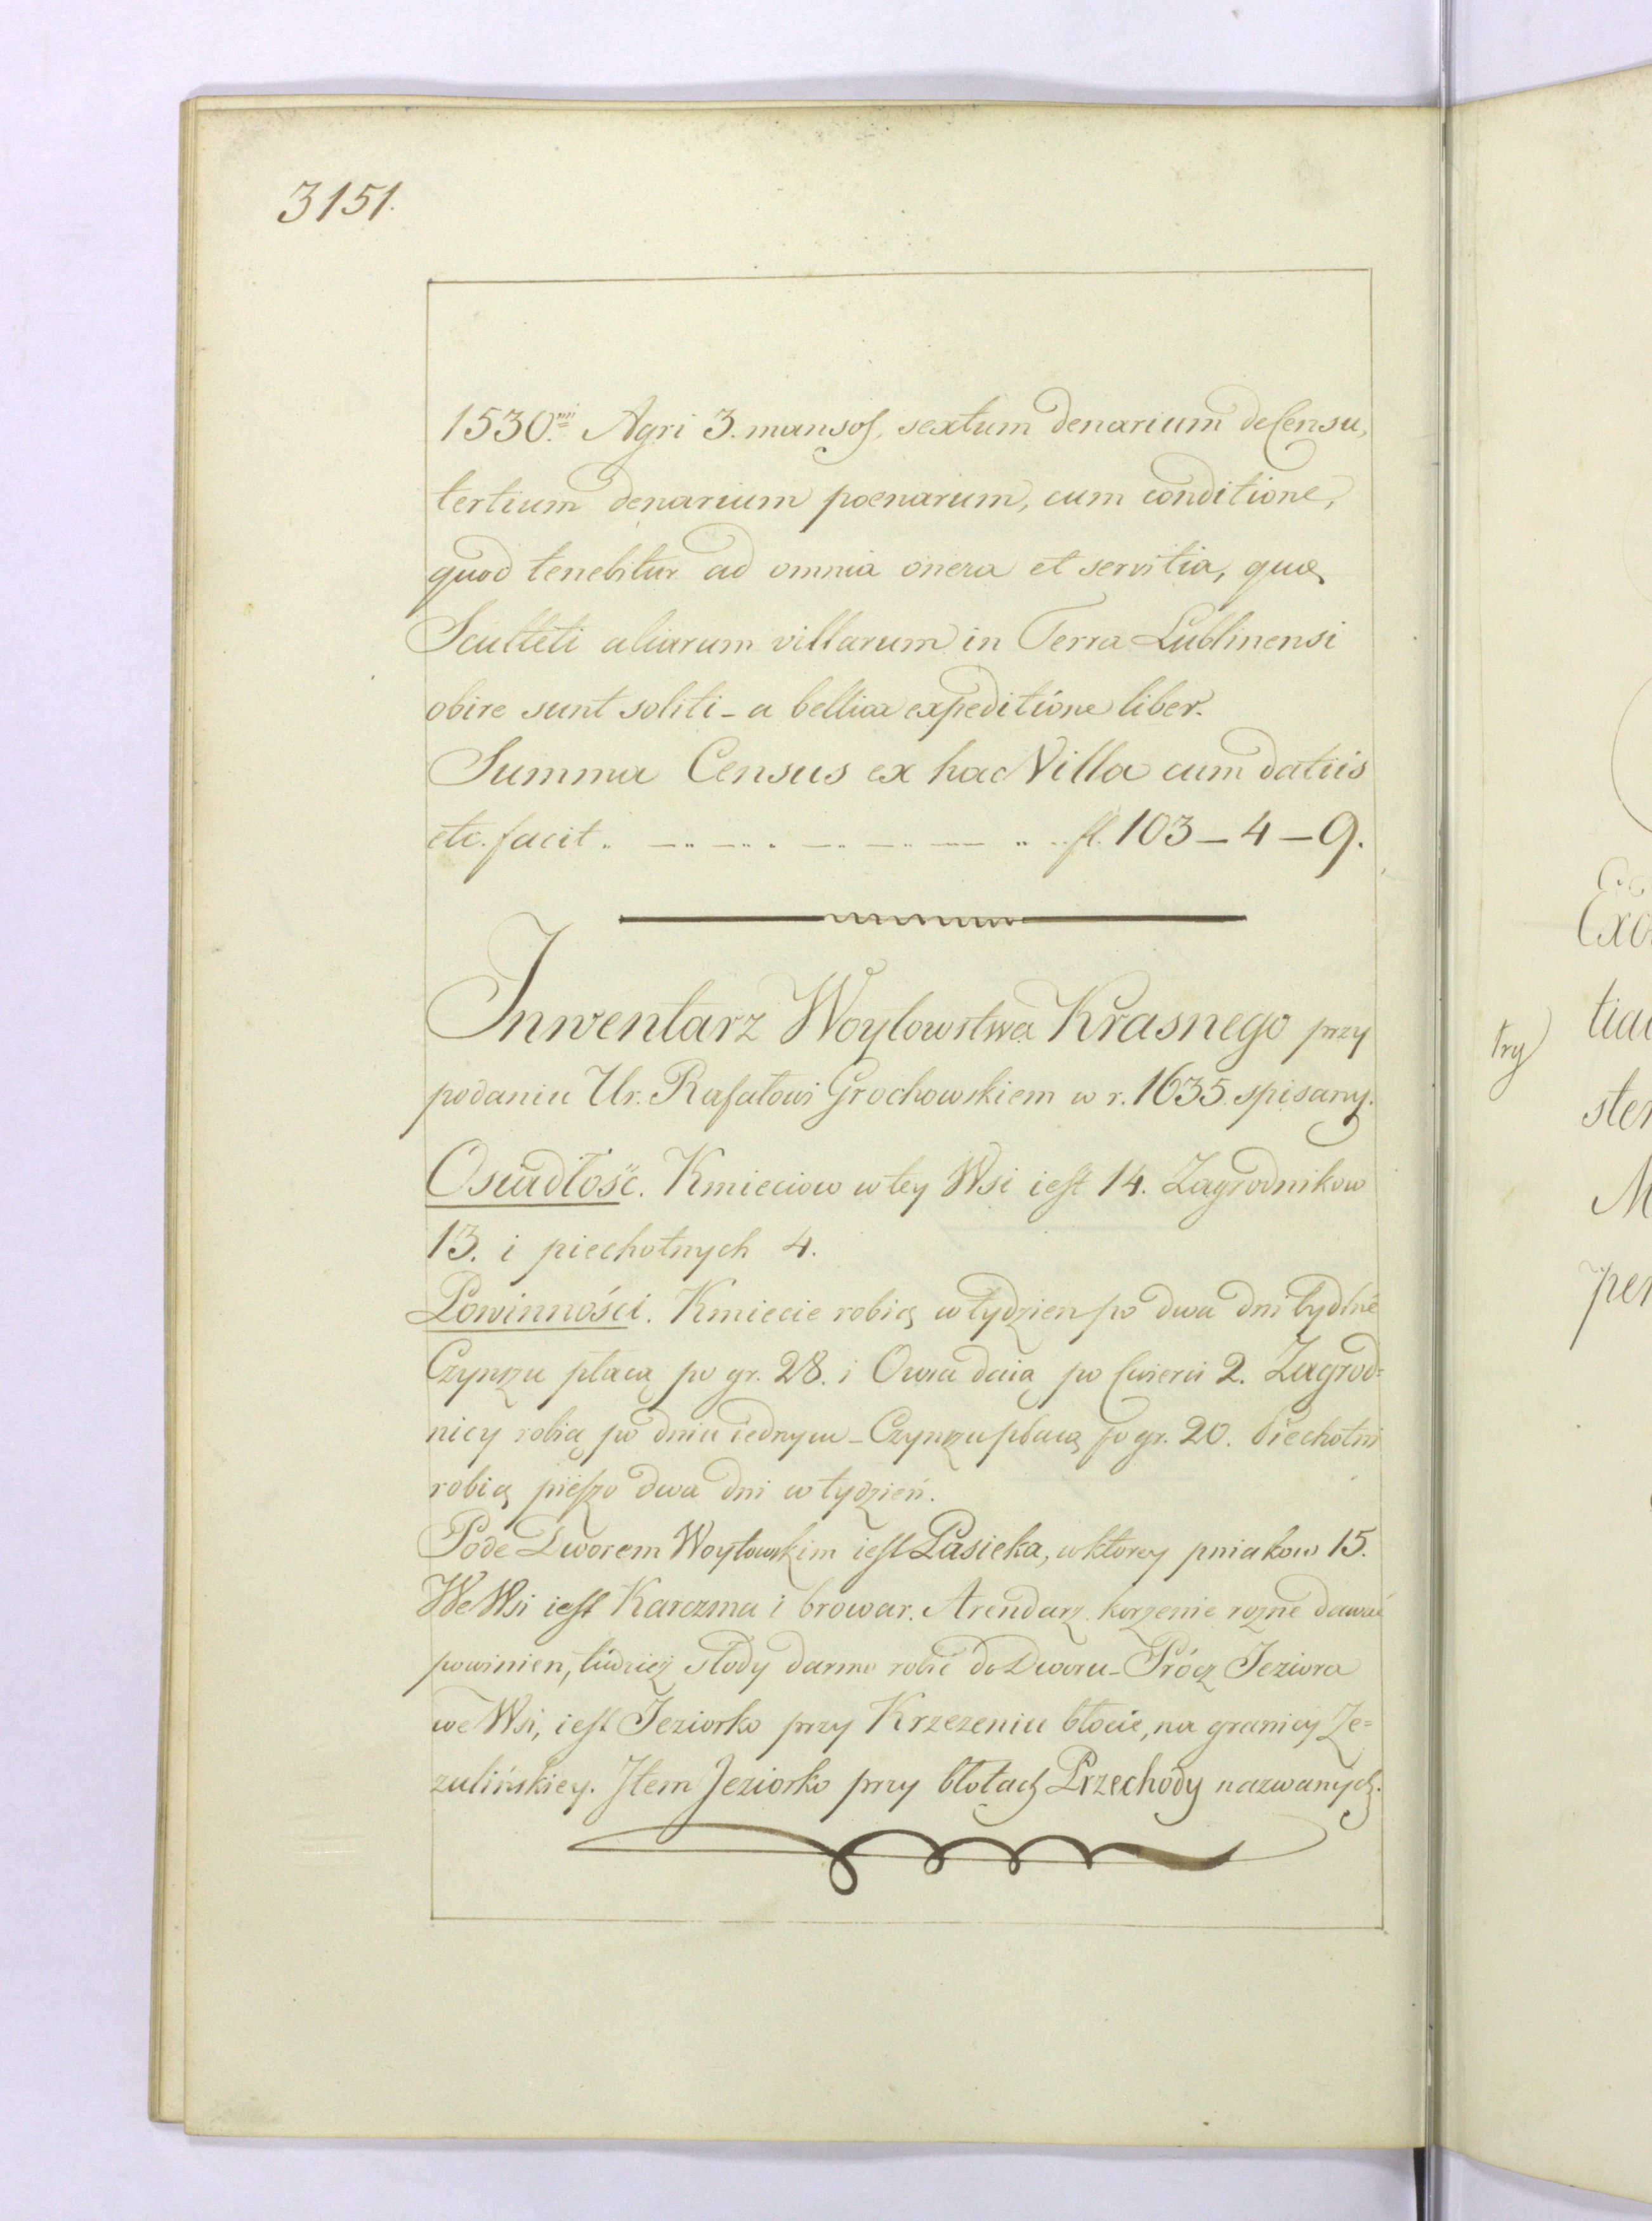 3151.
1530.mi Agri 3. mansos, sextum denarium de Censu,
tertium denarium poenarum, cum conditione,
quod tenebitur ad omnia onera et servitia, quae
Sculteti aliarum villarum in Terra Lublinensi
obire sunt soliti – a bellica expeditione liber.
Summa Census ex hac Villa cum datiis
etc. facit . . . . fl. 103 – 4 – 9.
Inwentarz Woytowstwa Krasnego przy
podaniu Ur. Rafałowi Grochowskiem w r. 1635. spisany.
Osiadłość. Kmieciow w tey Wsi iest 14. Zagrodnikow
13. i piechotnych 4.
Powinności. Kmiecie robią w tydzien po dwa dni bydłne
Czynszu płacą po gr. 28. i Owsa daią po Cwierci 2. Zagrod=
nicy robią po dniu iednym – Czynszu płacą po gr. 20. Piechotni
robią pieszo dwa dni w tydzień.
Pode Dworem Woytowskim iest Pasieka, w ktorey pniakow 15.
We Wsi iest Karczma i browar. Arendarz korzenie rozne dawać
powinien, tudziez słody darmo robić do Dworu – Prócz Jeziora
we Wsi, iest Jeziorko przy Krzezeniu błocie, na granicy Ze=
zulińskiey. Item Jeziorko przy błotach Przechody nazwanych.
try
tia
ster
M
per